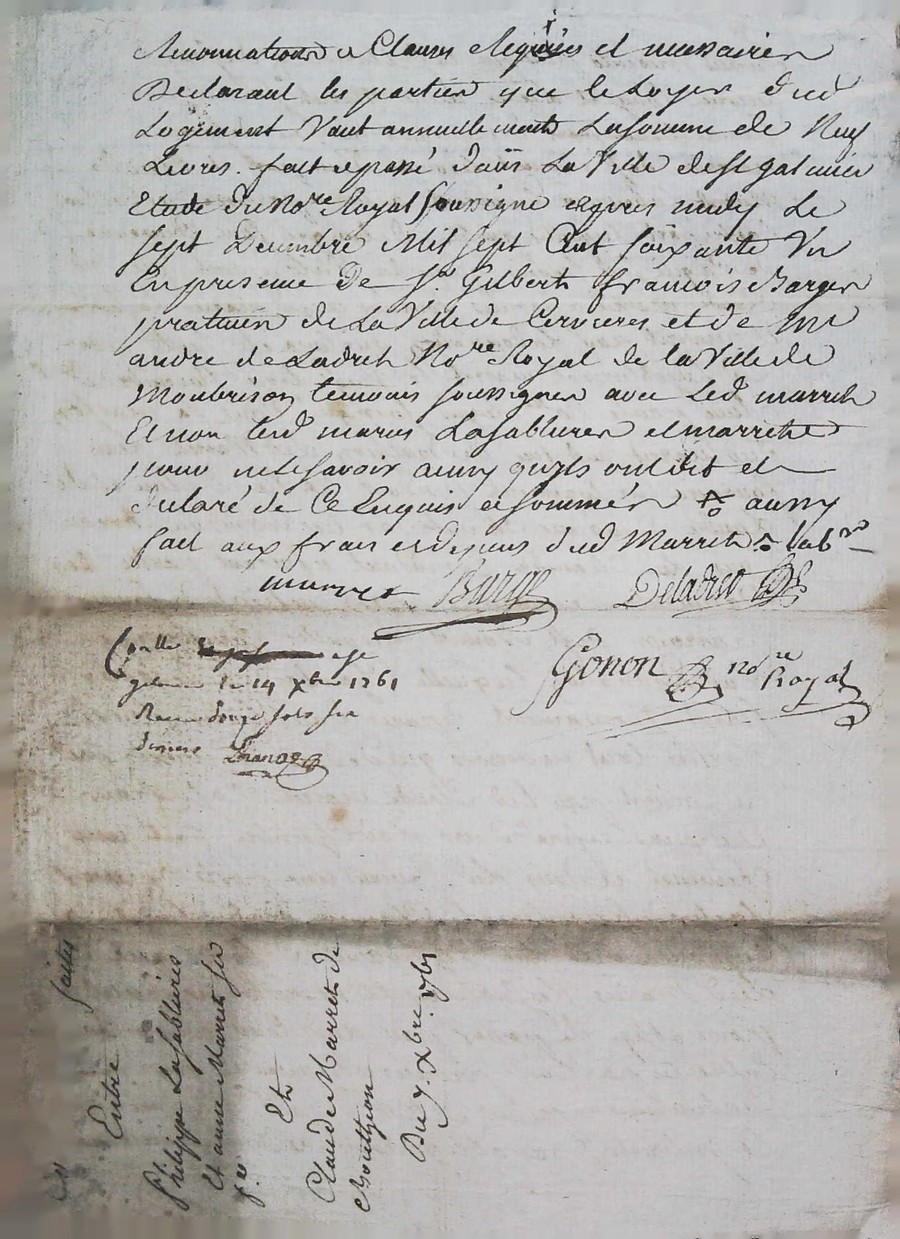 Renonciations e Clauses Requises et necessaires
Declarant les parties que le Loyer dud
Logement Vaut annuellement La somme de Neuf
Livres. fait e passé dans La Ville de st galmier
Etude du Nore Royal soussigne apres midy Le
sept Decembre Mil sept Cent soixante Un
En presence De sr. Gilbert françois Barge
praticien de La Ville de Cervieres et de Me
andre de Ladret Nore Royal de la Ville de
Montbrison temoins soussignes avec Led marret
Et non lesd maries Lasablieres et marret
pour ne le savoir ainsy qu'ils ont dit et
declaré de Ce Enquis e sommés ainsy
fait aux frais et depens dud Marret
marret Barge Deladret
Gonon nore Royal
Con.lle
galmier Le 14 xbre 1761
Recu douze sols six
deniers
faites
Entre
Philippe Lasablieres
Et anne Marret sa
fe.
Et
Claude Marret de
Bouthéon
Du 7. Xbre 1761